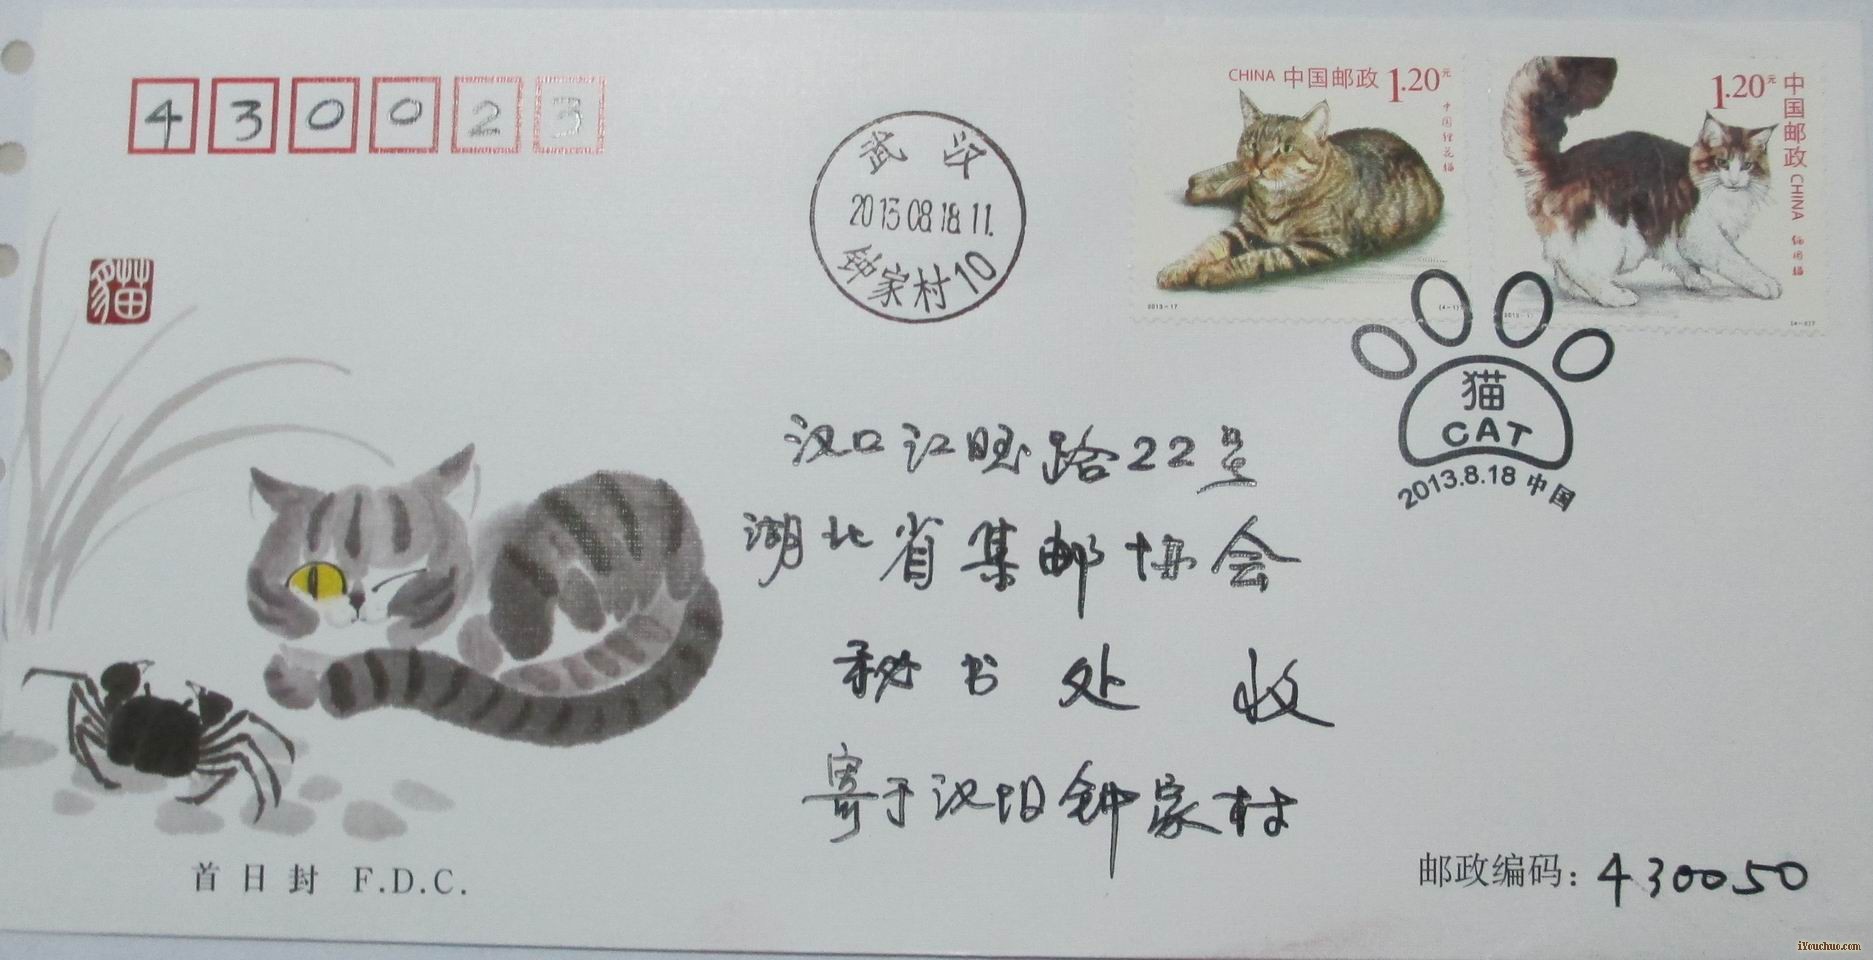 430023
武汉
2013.08.18.11.
钟家村10
CHINA 中国邮政 1.20元
中国狸花猫
2013-17
(4-1)
1.20元
中国邮政 CHINA
缅因猫
猫
猫
CAT
2013.8.18 中国
汉口江旺路22号
湖北省集邮协会
秘书处 收
寄于汉阳钟家村
首日封 F.D.C.
邮政编码：430050
iYouchuo.com